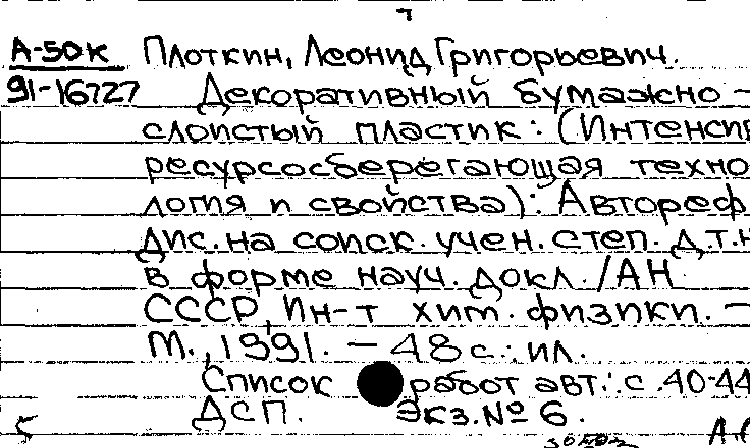 А-50к Плоткин, Леонид Григорьевич.
91-16727 Декоративный бумажно-
слоистый пластик: (Интенсив
ресурсосберегающая техно
логия и свойства): Автореф
дис. на соиск. учен. степ. д.т.н
в форме науч. докл. /АН
СССР, Ин-т хим. физики. –
М., 1991. – 48 с.: ил.
Список работ авт.: с. 40-44
ДСП. Экз. № 6.
5